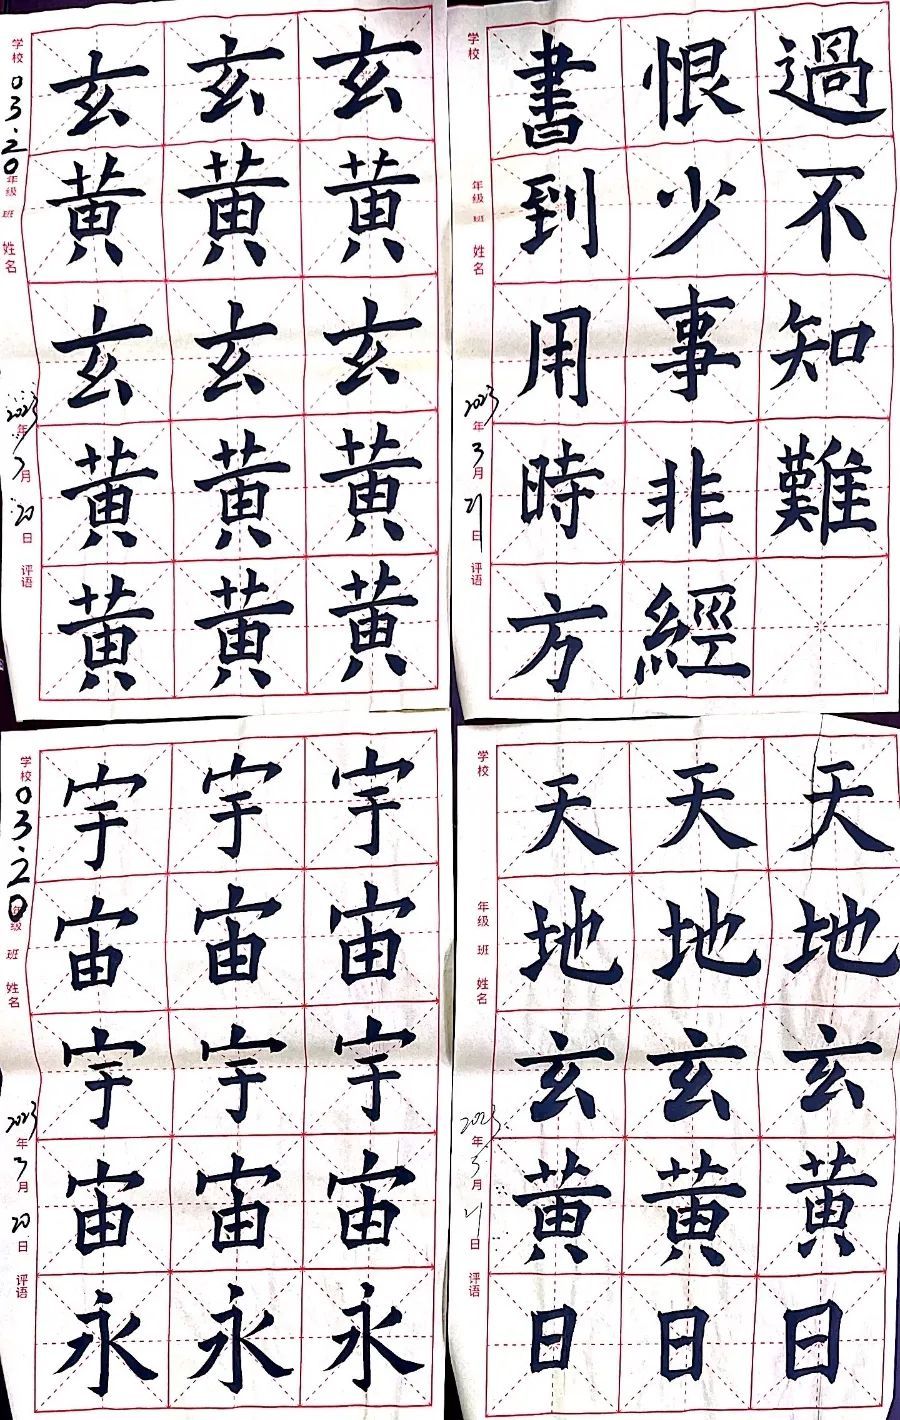 学校 03.20 年级 班 姓名 2023年3月20日 评语
玄玄玄
黄黄黄
玄玄玄
黄黄黄
黄黄黄
学校 年级 班 姓名 2023年3月21日 评语
書到用時方
恨少事非經
過不知難
学校 03.20 年级 班 姓名 2023年3月20日 评语
宇宇宇
宙宙宙
宇宇宇
宙宙宙
永永永
学校 年级 班 姓名 2023年3月21日 评语
天天天
地地地
玄玄玄
黄黄黄
日日日